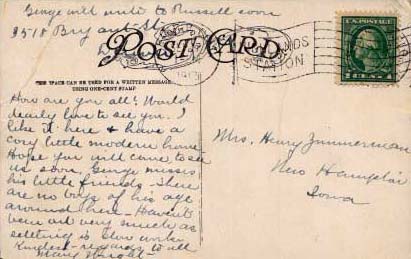 George will write to Russell soon
3518 Bryant St.
POST CARD
STATION
U.S. POSTAGE
1 CENT 1
THE SPACE CAN BE USED FOR A WRITTEN MESSAGE
USING ONE-CENT STAMP
How are you all? Would
dearly love to see you. I
like it here & have a
cozy little modern home
Hope you will come to see
us soon, George misses
his little friends - There
are no boys of his age
around here - Haven't
been out very much as
settling is slow work
Kindest regards to all
Mary Wright
Mrs. Henry Zimmerman
New Hampton
Iowa